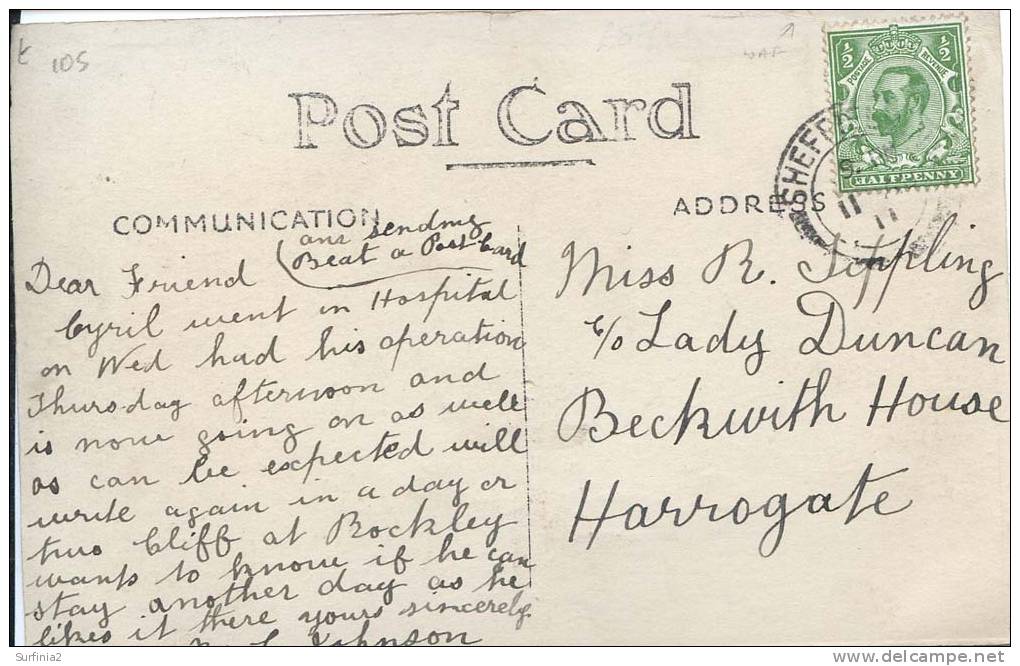 105
Post Card
COMMUNICATION
ADDRESS
½ ½
POSTAGE REVENUE
HALFPENNY
SHEFFIE
11 11
ans sending
Beat a Post Card
Dear Friend
Cyril went in Hospital
on Wed had his operation
Thursday afternoon and
is now going on as well
as can be expected will
write again in a day or
two Cliff at Rockley
wants to know if he can
stay another day as he
likes it there yours sincerely
Johnson
Miss R. Tippling
c/o Lady Duncan
Beckwith House
Harrogate
Surfinia2